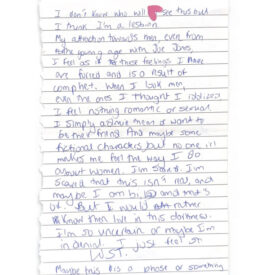 I don't know who will see this but
I think I'm a lesbian
My attraction towards men, even from
young age with Joe Jonas,
I feel as if those feelings I have
are forced and is a result of
comphet. When I look men,
even the ones I thought I idolized
I feel nothing romantic or sexual
I simply admire them or want to
be their friend. And maybe some
fictional characters but no one irl
makes me feel the way I do
about women. I'm scared. I'm
scared that this isn't real, and
maybe I am bi, and that's
ok. But I would rather
know then live in this darkness.
I'm so uncertain or maybe I'm
in denial. I just feel so
LOST.
Maybe this is a phase or something